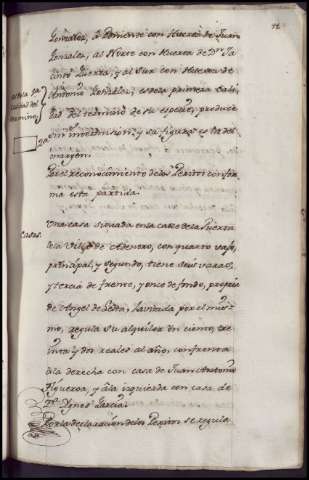 Gonzalez, a Poniente con Huerto de Juan
Gonzalez, al Norte con Huerta de Dn. Ja-
cinto Huerta, y al Sur con Huerta de
Antonio Gonzalez, es de primera cali-
dad del termino de su especie, produce
sin intermision, y su figura es la del
margen.
Por el reconocimiento de los Peritos confor-
ma esta partida.
Casas.
Una casa situada en la calle de la Puerta
de la Villa de Ademuz, con quarto vajo,
principal, y segundo, tiene seis varas,
y tercia de frente, y once de fondo, propia
de Angel de
mo, regula su alquiler en ciento, tre-
inta y dos reales al año, confronta
a la derecha con casa de Juan Antonio
Figueroa, y a la izquierda con casa de
Ygnes Garcia.
Por la declaracion de los Peritos se regula